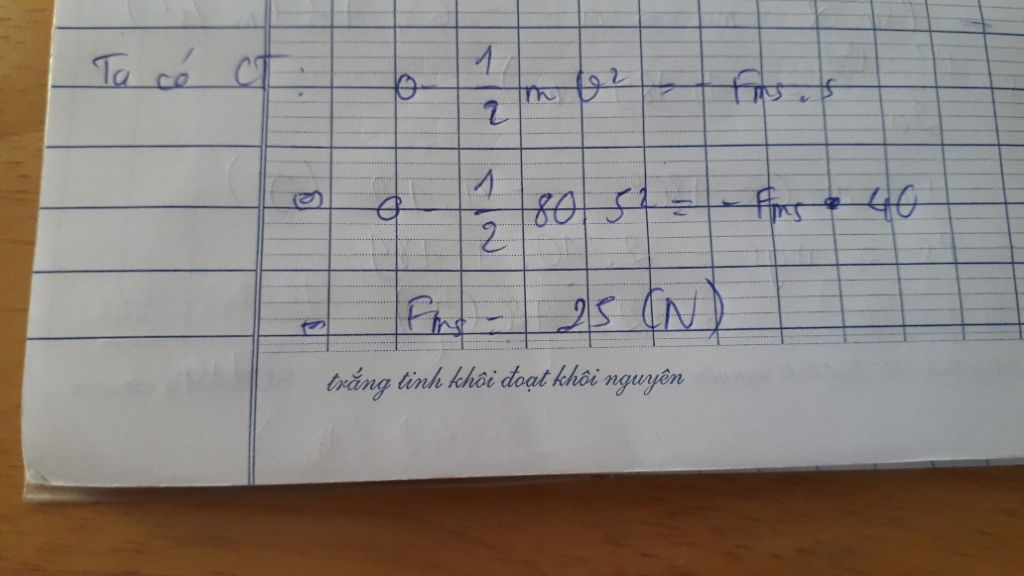 Ta có CT: 0 - 1/2 m v² = - Fms . s
⇔ 0 - 1/2 80. 5² = - Fms . 40
⇔ Fms = 25 (N)
trắng tinh khôi đoạt khôi nguyên